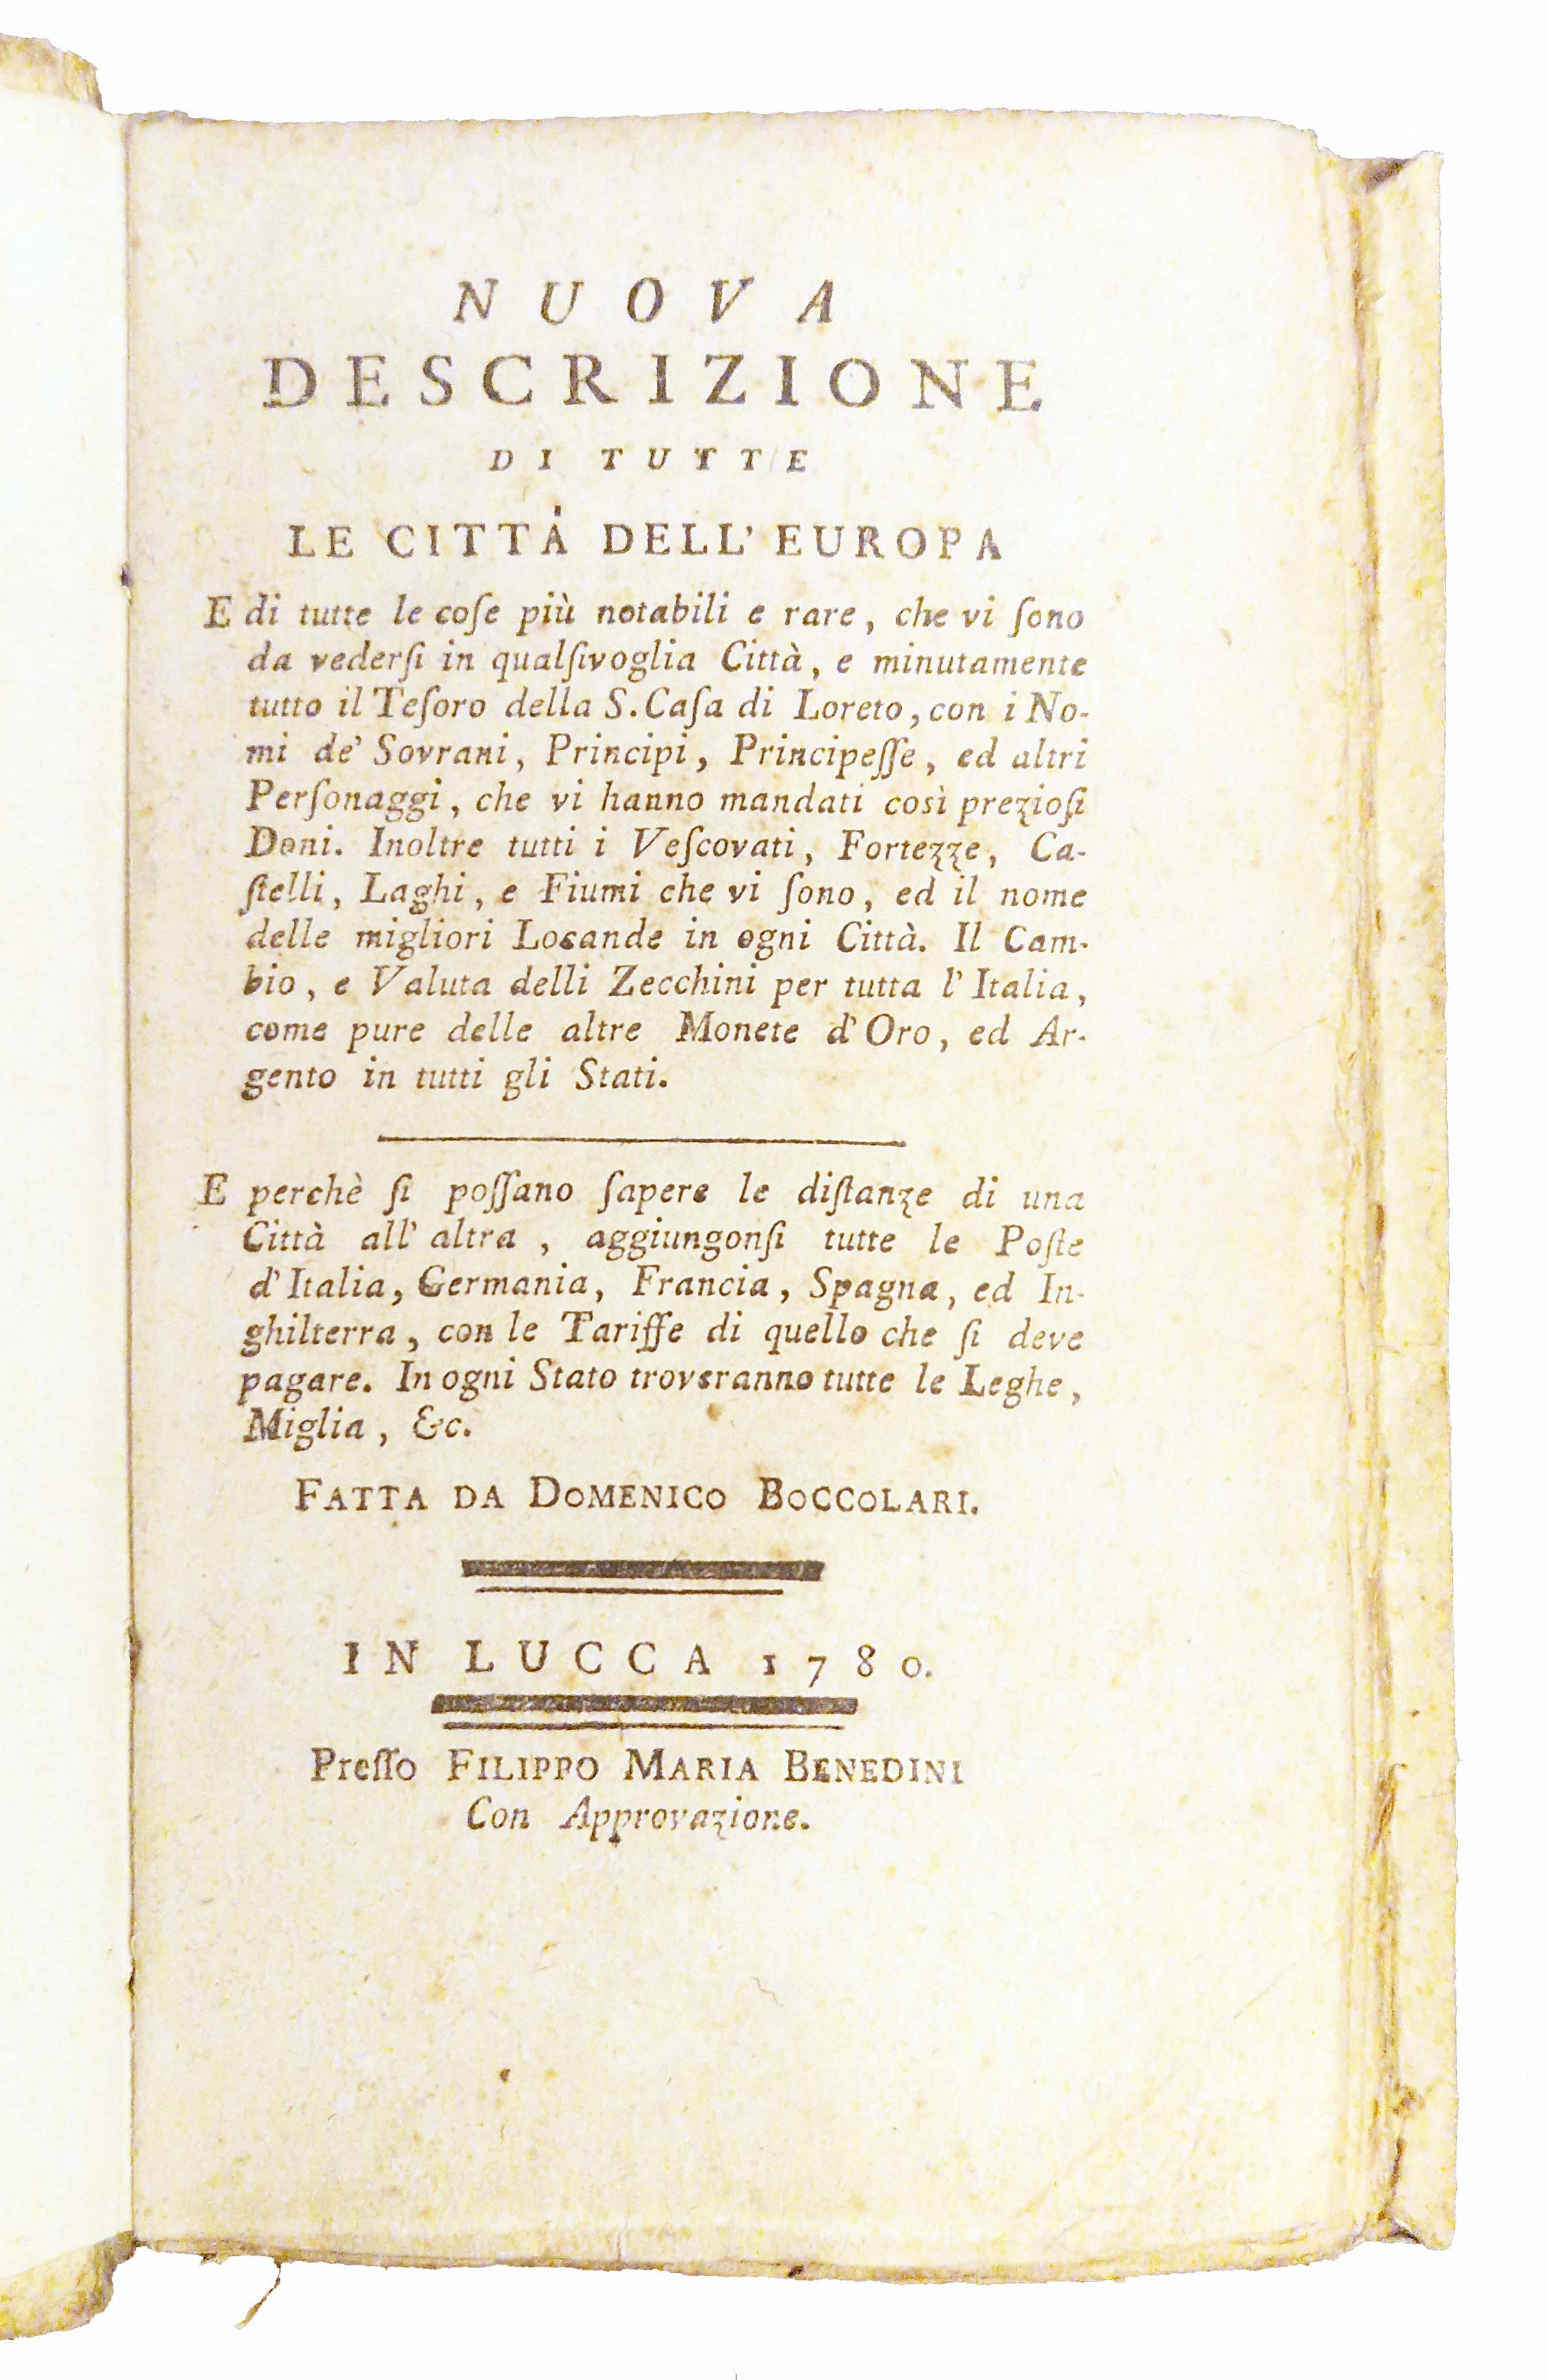 NUOVA
DESCRIZIONE
DI TUTTE
LE CITTÀ DELL' EUROPA
E di tutte le coſe più notabili e rare, che vi ſono
da vederſi in qualſivoglia Città, e minutamente
tutto il Teſoro della S. Caſa di Loreto, con i No-
mi de' Sovrani, Principi, Principeſſe, ed altri
Perſonaggi, che vi hanno mandati così prezioſi
Doni. Inoltre tutti i Veſcovati, Fortezze, Ca-
ſtelli, Laghi, e Fiumi che vi ſono, ed il nome
delle migliori Locande in ogni Città. Il Cam-
bio, e Valuta delli Zecchini per tutta l' Italia,
come pure delle altre Monete d' Oro, ed Ar-
gento in tutti gli Stati.
E perchè ſi poſſano ſapere le diſtanze di una
Città all' altra, aggiungonſi tutte le Poſte
d' Italia, Germania, Francia, Spagna, ed In-
ghilterra, con le Tariffe di quello che ſi deve
pagare. In ogni Stato troveranno tutte le Leghe,
Miglia, &c.
FATTA DA DOMENICO BOCCOLARI.
IN LUCCA 1780.
Preſſo FILIPPO MARIA BENEDINI
Con Approvazione.